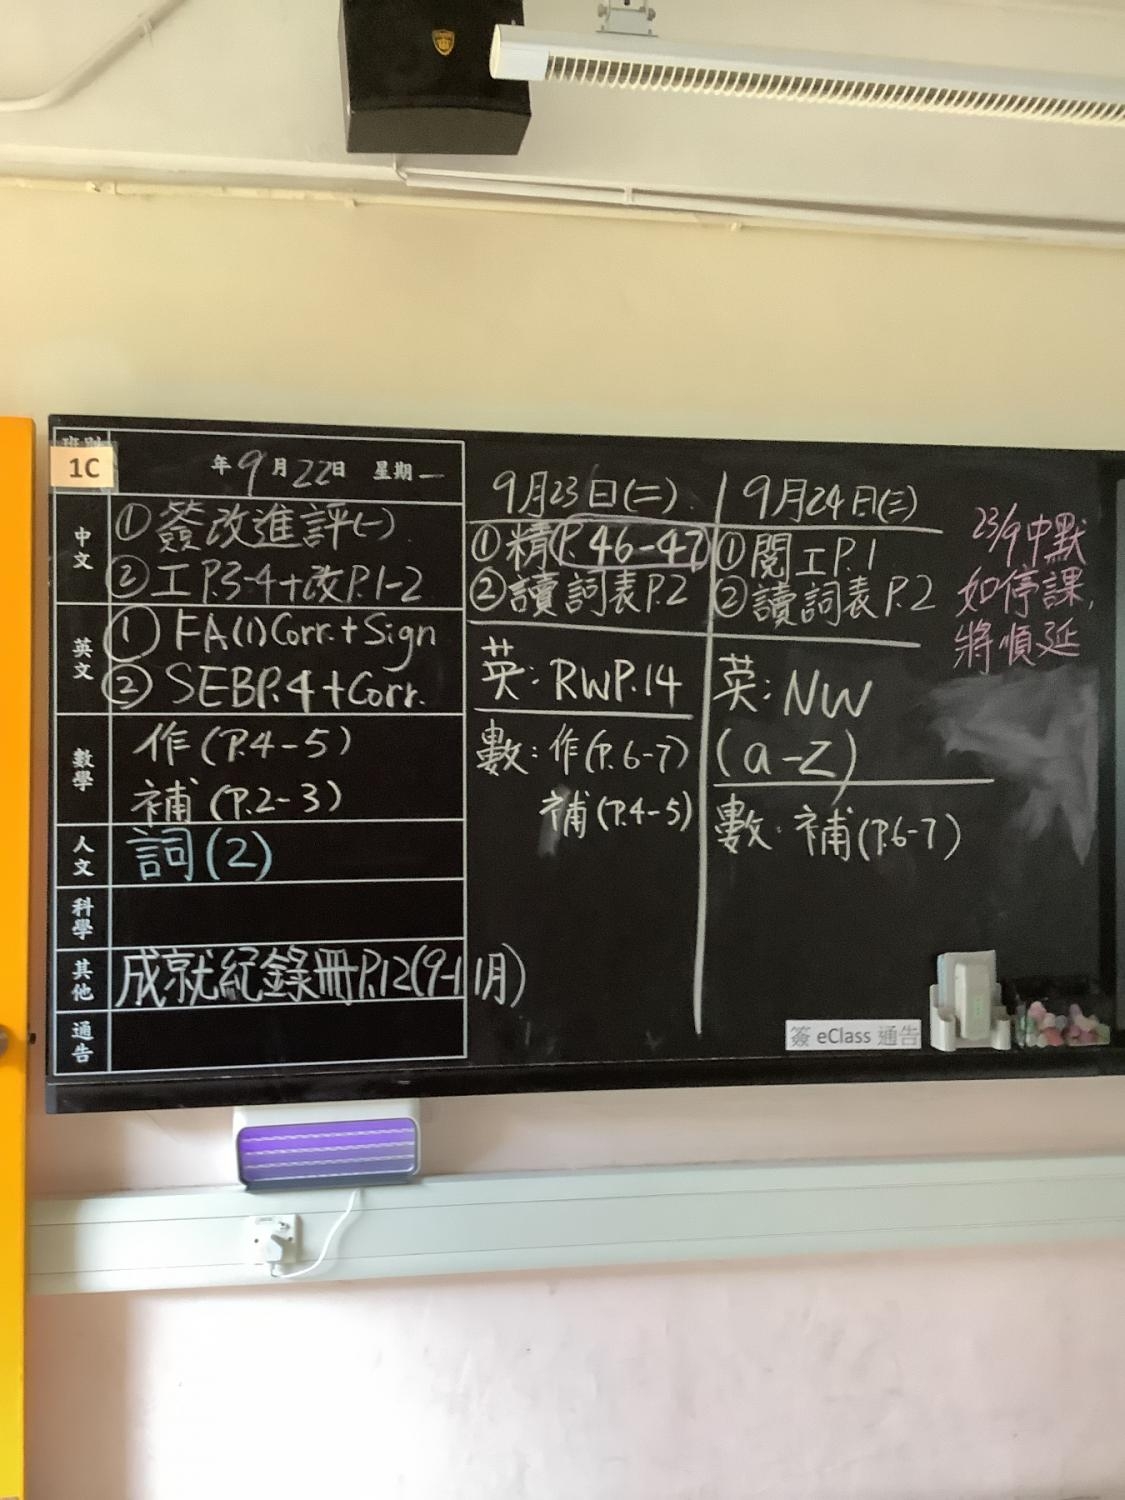 班別
1C
年9月22日 星期一
中文
①簽改進評(一)
②工P.3-4+改P.1-2
英文
① FA(1)Corr.+Sign
② SEBP.4+Corr.
數學
作(P.4-5)
補(P.2-3)
人文
詞(2)
科學
其他
成就紀錄冊P.12(9-11月)
通告
9月23日(二)
①精(P.46-47)
②讀詞表P.2
英:RWP.14
數:作(P.6-7)
補(P.4-5)
9月24日(三)
①閱工P.1
②讀詞表P.2
英:NW
(a-z)
數:補(P.6-7)
23/9中默
如停課,
將順延
簽 eClass 通告